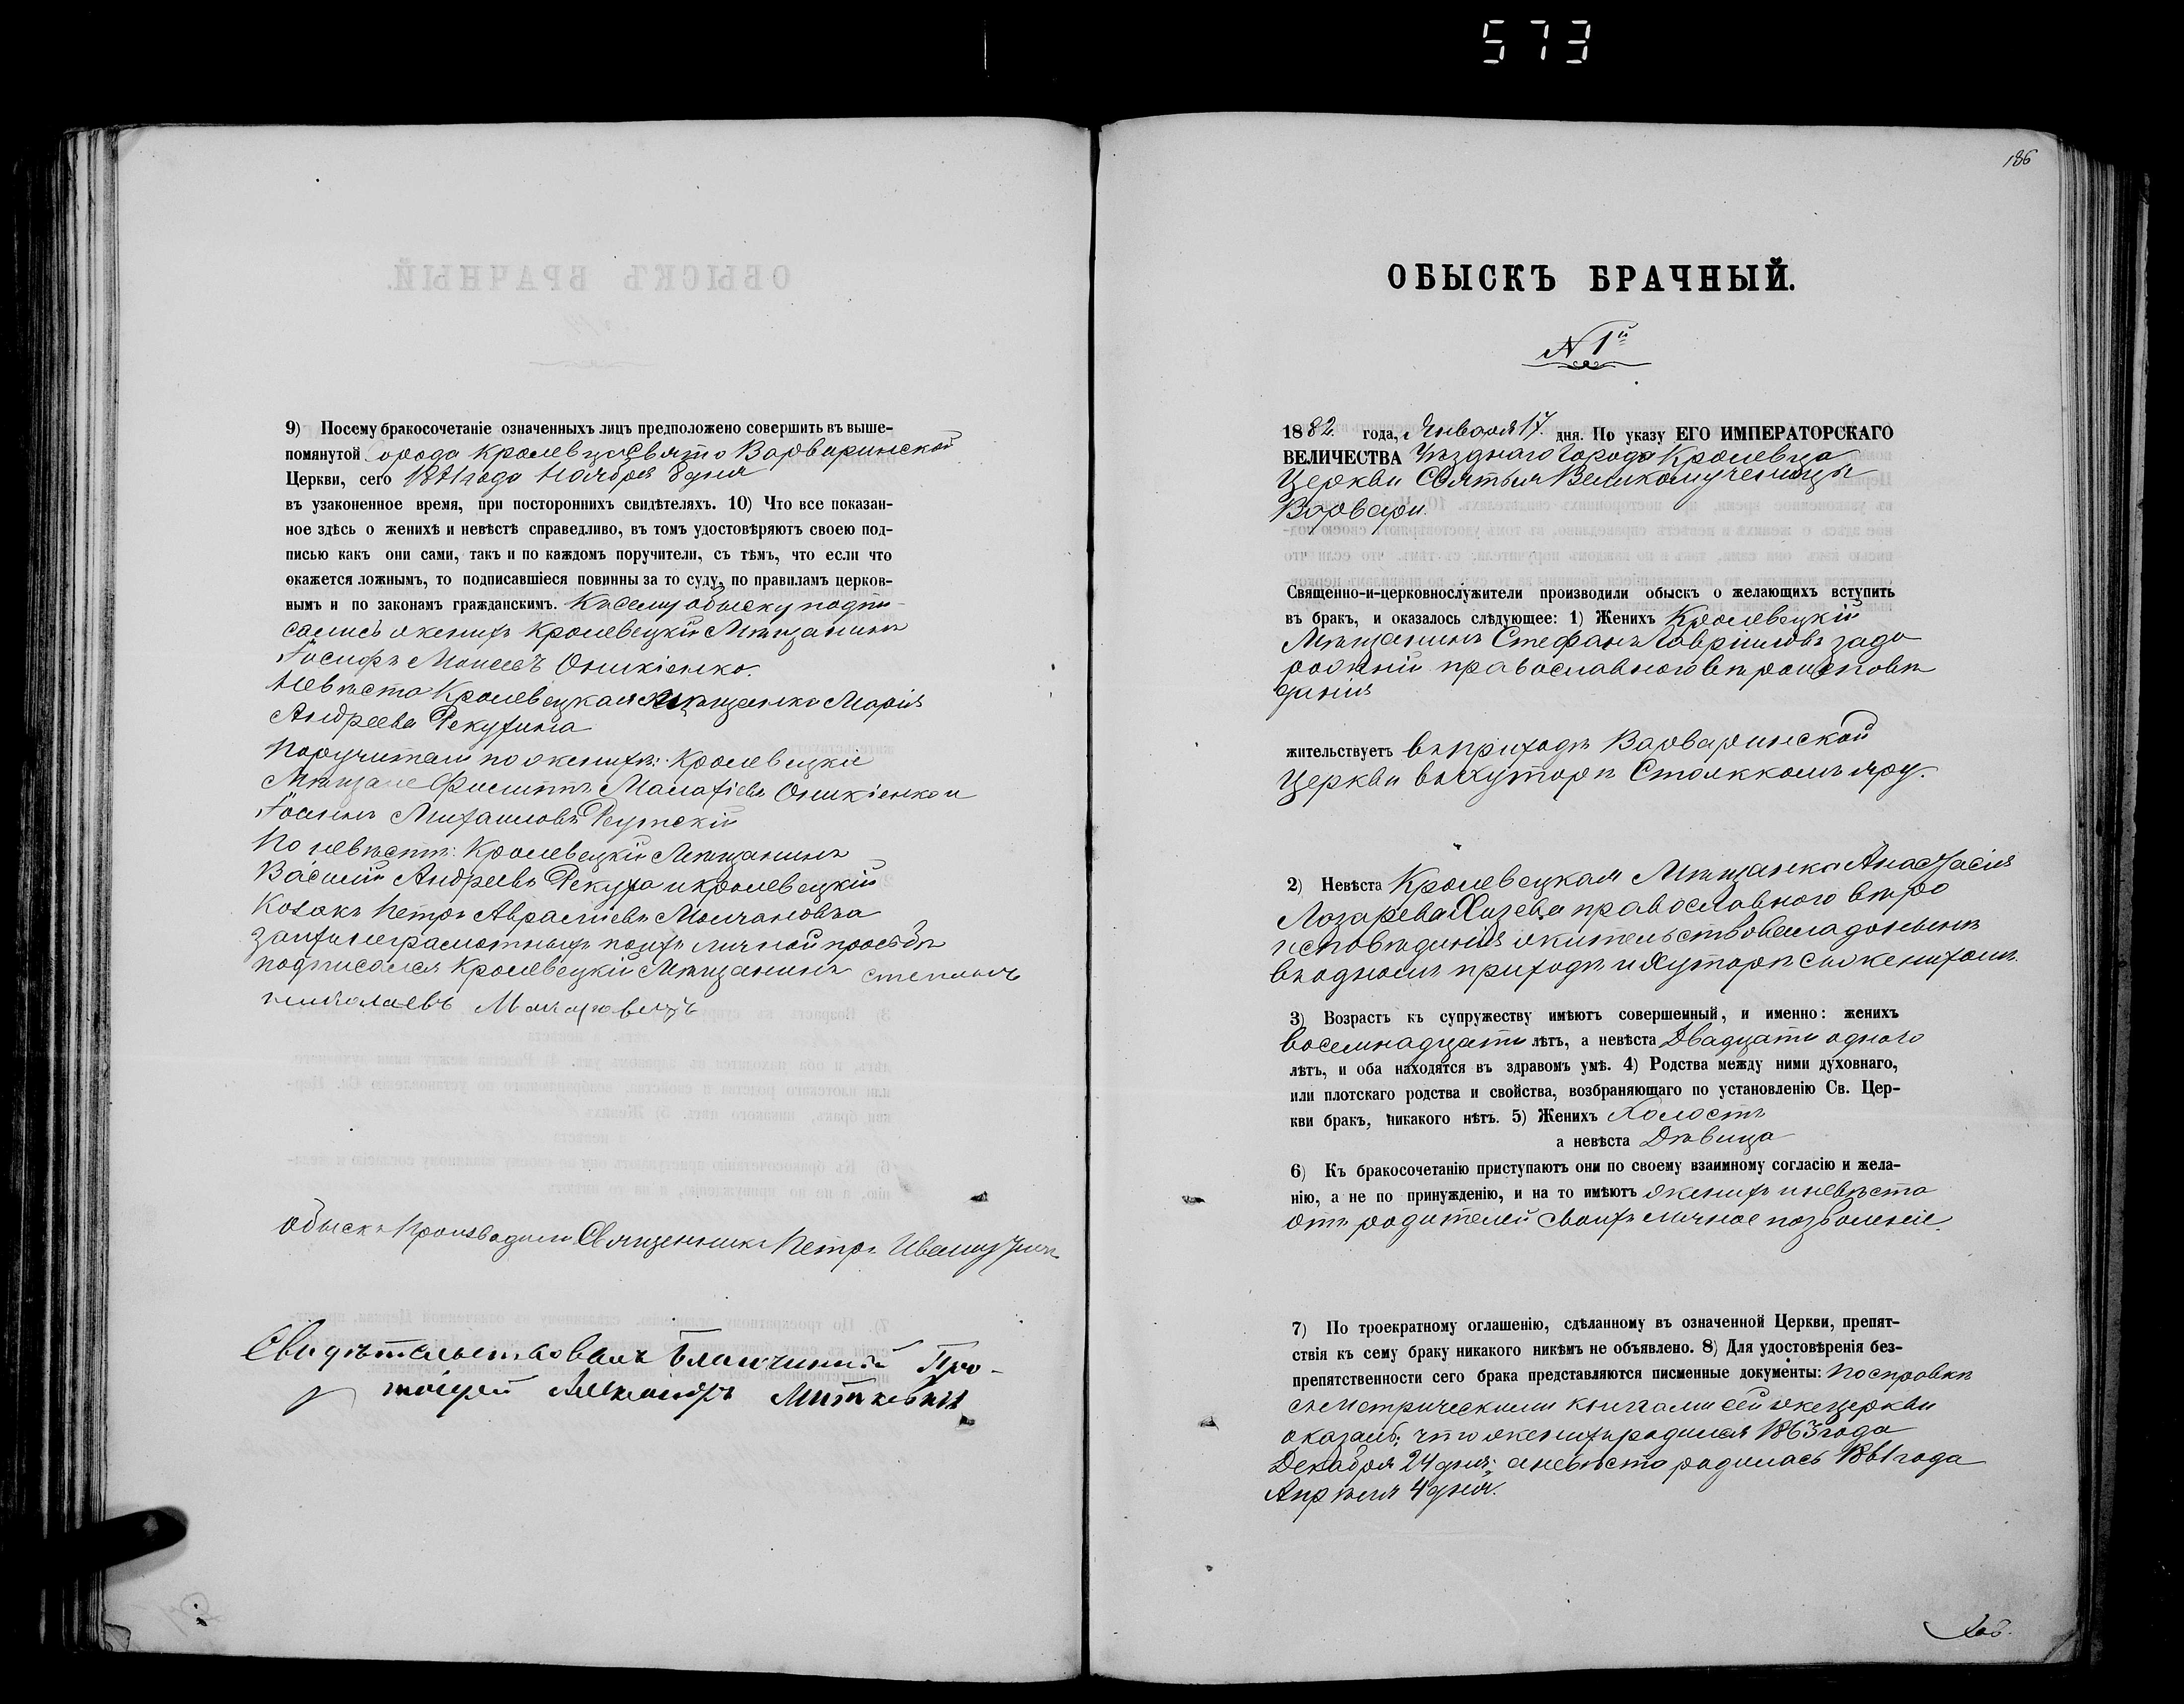 573
9) Посему бракосочетаніе означенныхъ лицъ предположено совершить въ выше-
помянутой города Кролевца Свято Варваринской
Церкви, сего 1881 года Ноября 8 дня
въ узаконенное время, при постороннихъ свидѣтеляхъ. 10) Что все показан-
ное здѣсь о женихѣ и невѣстѣ справедливо, въ томъ удостовѣряютъ своею под-
писью какъ они сами, такъ и по каждомъ поручители, съ тѣмъ, что если что
окажется ложнымъ, то подписавшіеся повинны за то суду, по правиламъ церков-
нымъ и по законамъ гражданскимъ. Къ сему обыску подпи-
сались женихъ Кролевецкій Мѣщанинъ
Іосифъ Моисеевъ Оникіенко.
Невѣста Кролевецкая Мѣщанка Марія
Андреева Рекухина
Поручители по женихѣ: Кролевецкіе
Мѣщане Филиппъ Оникіенко и
Іоаннъ Михаиловъ
По невѣстѣ: Кролевецкій Мѣщанинъ
Василій Андреевъ Рекуха и кролевецкій
Козакъ Петръ Авраміевъ
За ихъ неграмотныхъ по ихъ личной просьбѣ
подписался Кролевецкій Мѣщанинъ степанъ
николаевъ
Обыскъ Производили Священникъ Петръ
Свидѣтельствовалъ Благочинный Про-
тоіерей Александръ Миткевичъ
186
ОБЫСКЪ БРАЧНЫЙ.
N 1й
1882 года, Января 17 дня. По указу ЕГО ИМПЕРАТОРСКАГО
ВЕЛИЧЕСТВА Уѣзднаго Города Кролевца
Церкви Святыя Великомученицы
Варвари.
Священно-и-церковнослужители производили обыскъ о желающихъ вступить
въ бракъ, и оказалось слѣдующее: 1) Женихъ Кролевецкій
Мѣщанинъ Стефанъ Гавріиловъ Задо
рожній православного вѣроисповѣ
данія
жительствуетъ въ приходѣ Варваринской
Церкви въ хуторѣ яру.
2) Невѣста Кролевецкая Мѣщанка Анастасія
Лазарева православного вѣро
исповѣданія жительствовала до нынѣ
въ одномъ приходѣ и хуторѣ съ женихомъ.
3) Возрастъ къ супружеству имѣютъ совершенный, и именно: женихъ
восемнадцати лѣтъ, а невѣста Двадцати одного
лѣтъ, и оба находятся въ здравомъ умѣ. 4) Родства между ними духовнаго,
или плотскаго родства и свойства, возбраняющаго по установленію Св. Цер-
кви бракъ, никакого нѣтъ. 5) Женихъ Холостъ
а невѣста Дѣвица
6) Къ бракосочетанію приступаютъ они по своему взаимному согласію и жела-
нію, а не по принужденію, и на то имѣютъ женихъ и невѣста
отъ родителей своихъ личное позволеніе.
7) По троекратному оглашенію, сдѣланному въ означенной Церкви, препят-
ствія къ сему браку никакого никѣмъ не объявлено. 8) Для удостовѣренія без-
препятственности сего брака представляются писменные документы: По справкѣ
съ метрическими книгами сей же церкви
оказалось; что женихъ родился 1863 года
Декабря 24 дня; а невѣста родилась 1861 года
Апрѣля 4 дня.